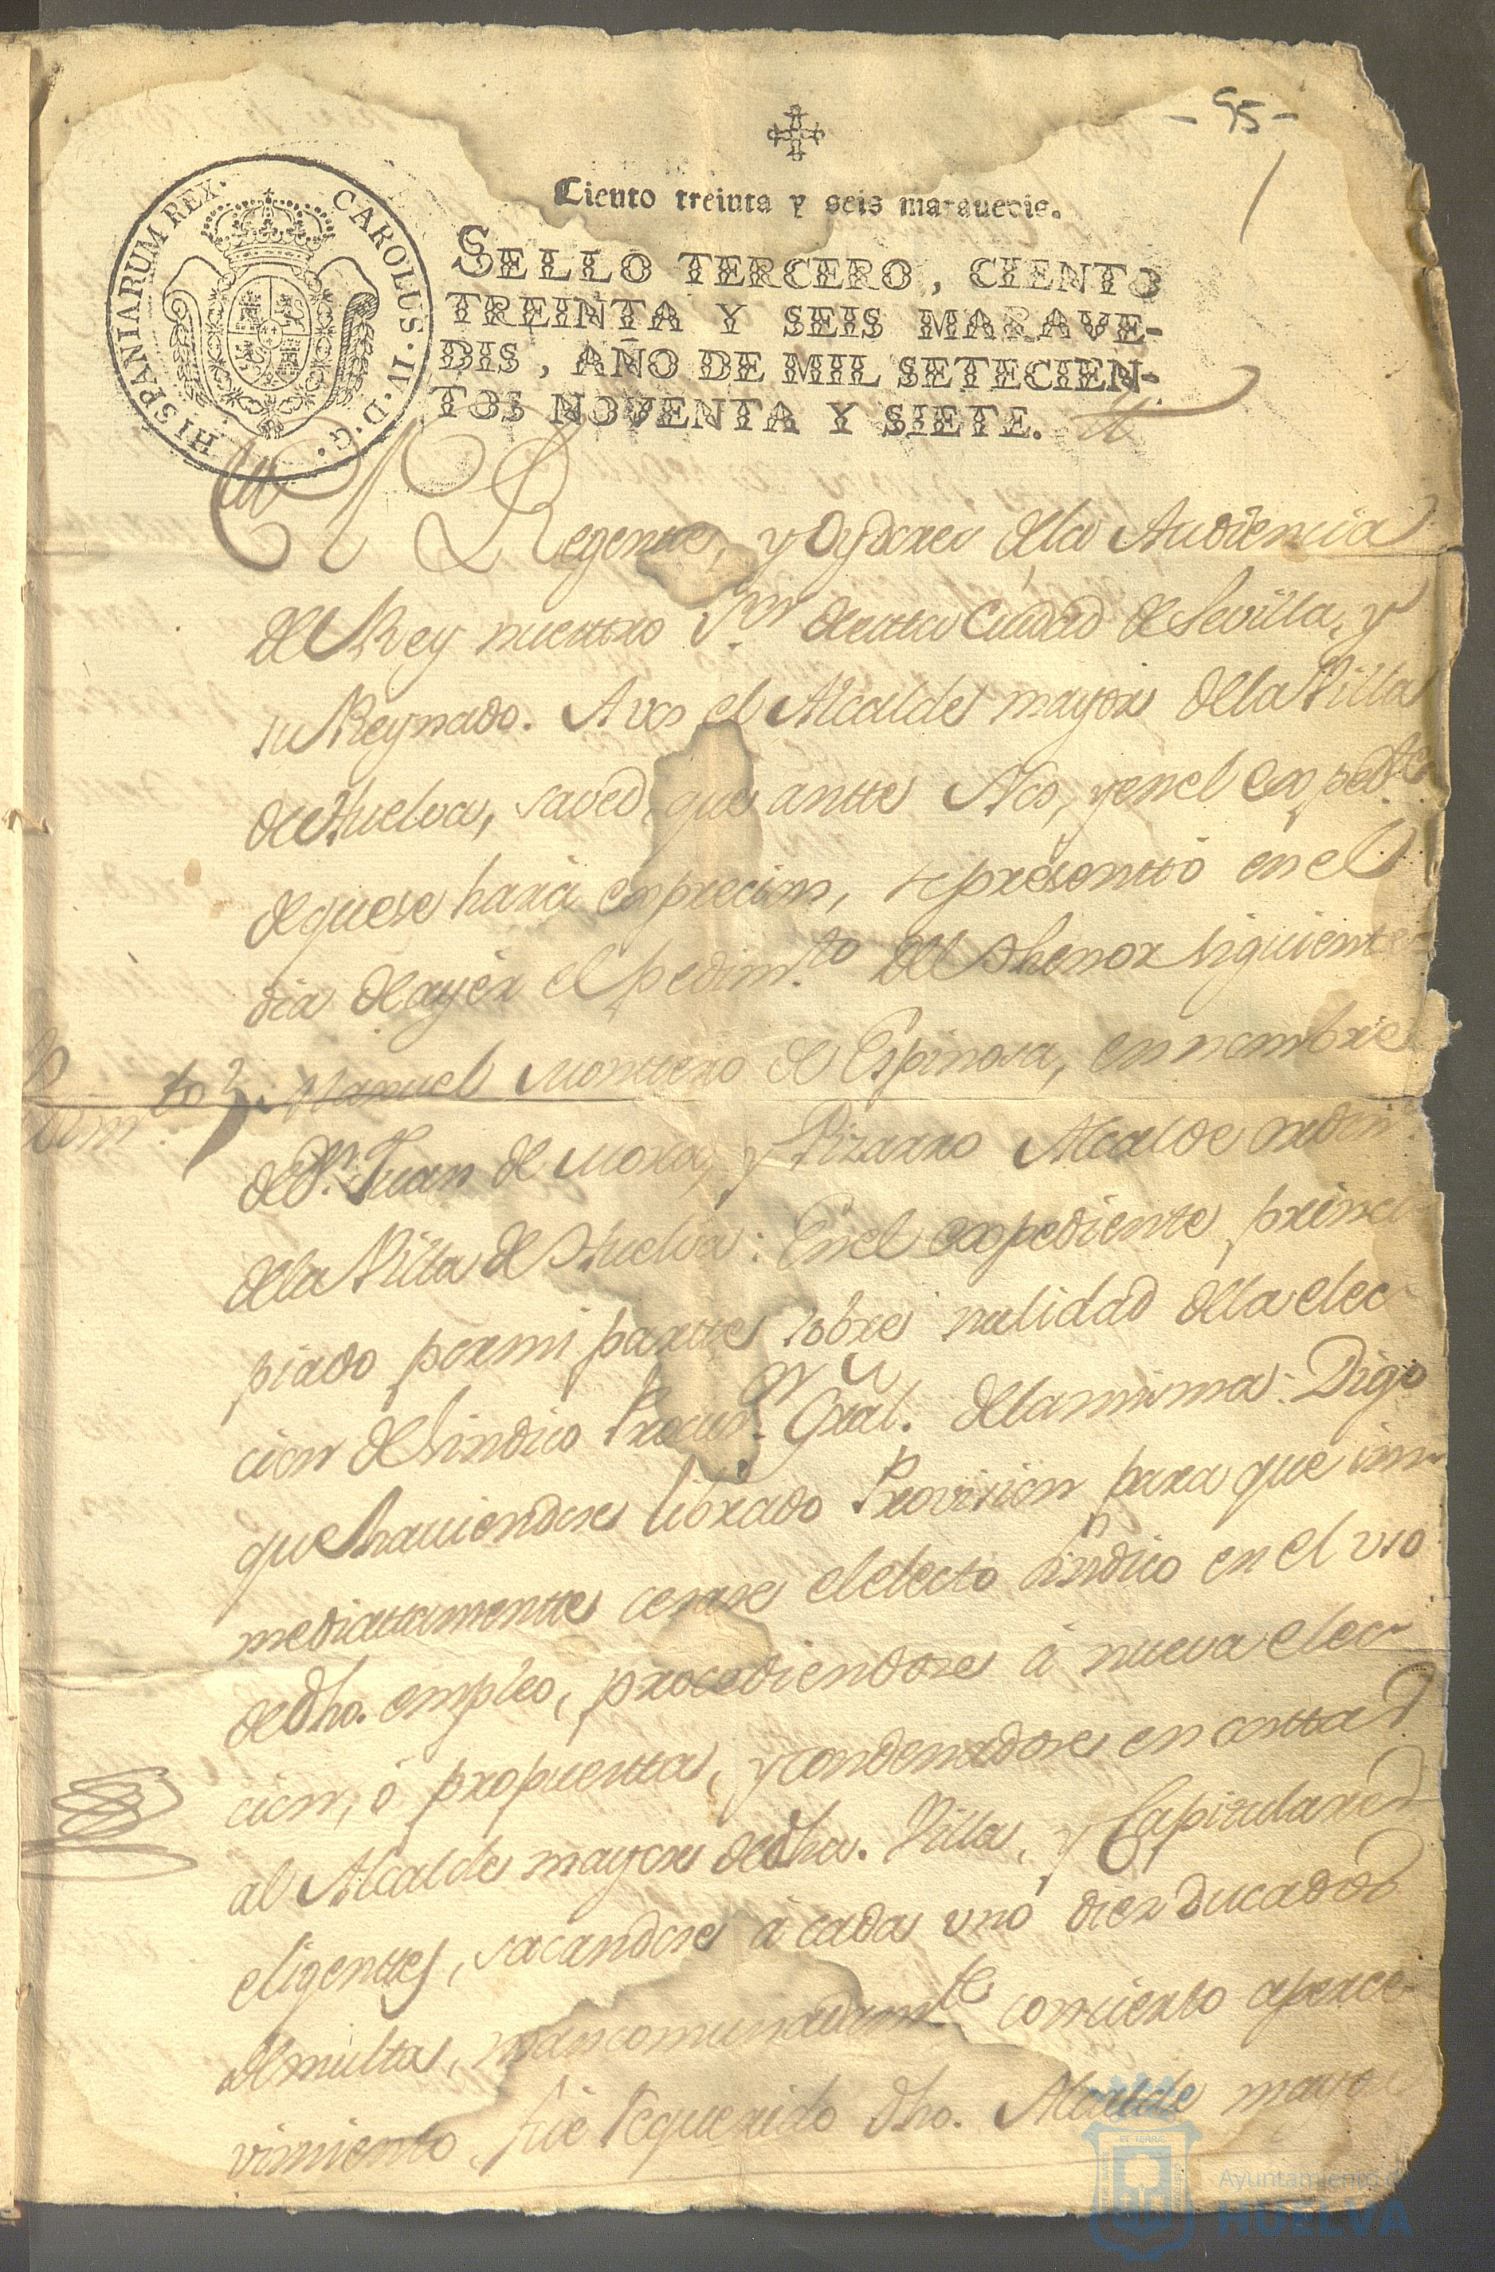 - 95 -
Ciento treinta y seis marauedis.
HISPANIARUM REX. CAROLUS·IV·D·G·
SELLO TERCERO, CIENTO
TREINTA Y SEIS MARAVE-
DIS, AÑO DE MIL SETECIEN-
TOS NOVENTA Y SIETE.
Regente, y Oydores dela Audiencia
del Rey nuestro S.or de esta Ciudad de Sevilla, y
su Reynado. A vos el Alcalde mayor dela Villa
de Huelva, saved que antte Nos, y en el exped.te
de que se hará expresion, se presenttó en el
dia de ayer el pedim.to del thenor siguiente
Pedim.to Manuel Montero de Espinosa, en nombre
de D.n Juan de Mora, y Pizarro Alcalde ordin.o
dela Villa de Huelva: En el expediente princi
piado por mi partte sobre nulidad dela elec
cion de Sindico Procur.or Gral. dela misma: Digo
que haviendose librado Provision para que im
mediattamentte cesase el electo Sindico en el uso
de dho. empleo, procediendose á nueva elec
cion, ó propuestta, y condenadose en costtas
al Alcalde mayor de dha. Villa, y Capitulares
eligenttes, sacandose á cada uno diez ducados
de multa, mancomunadam.te con cierto aperce-
vimiento, fue requerido dho. Alcalde mayor
Ayuntamiento de
HUELVA